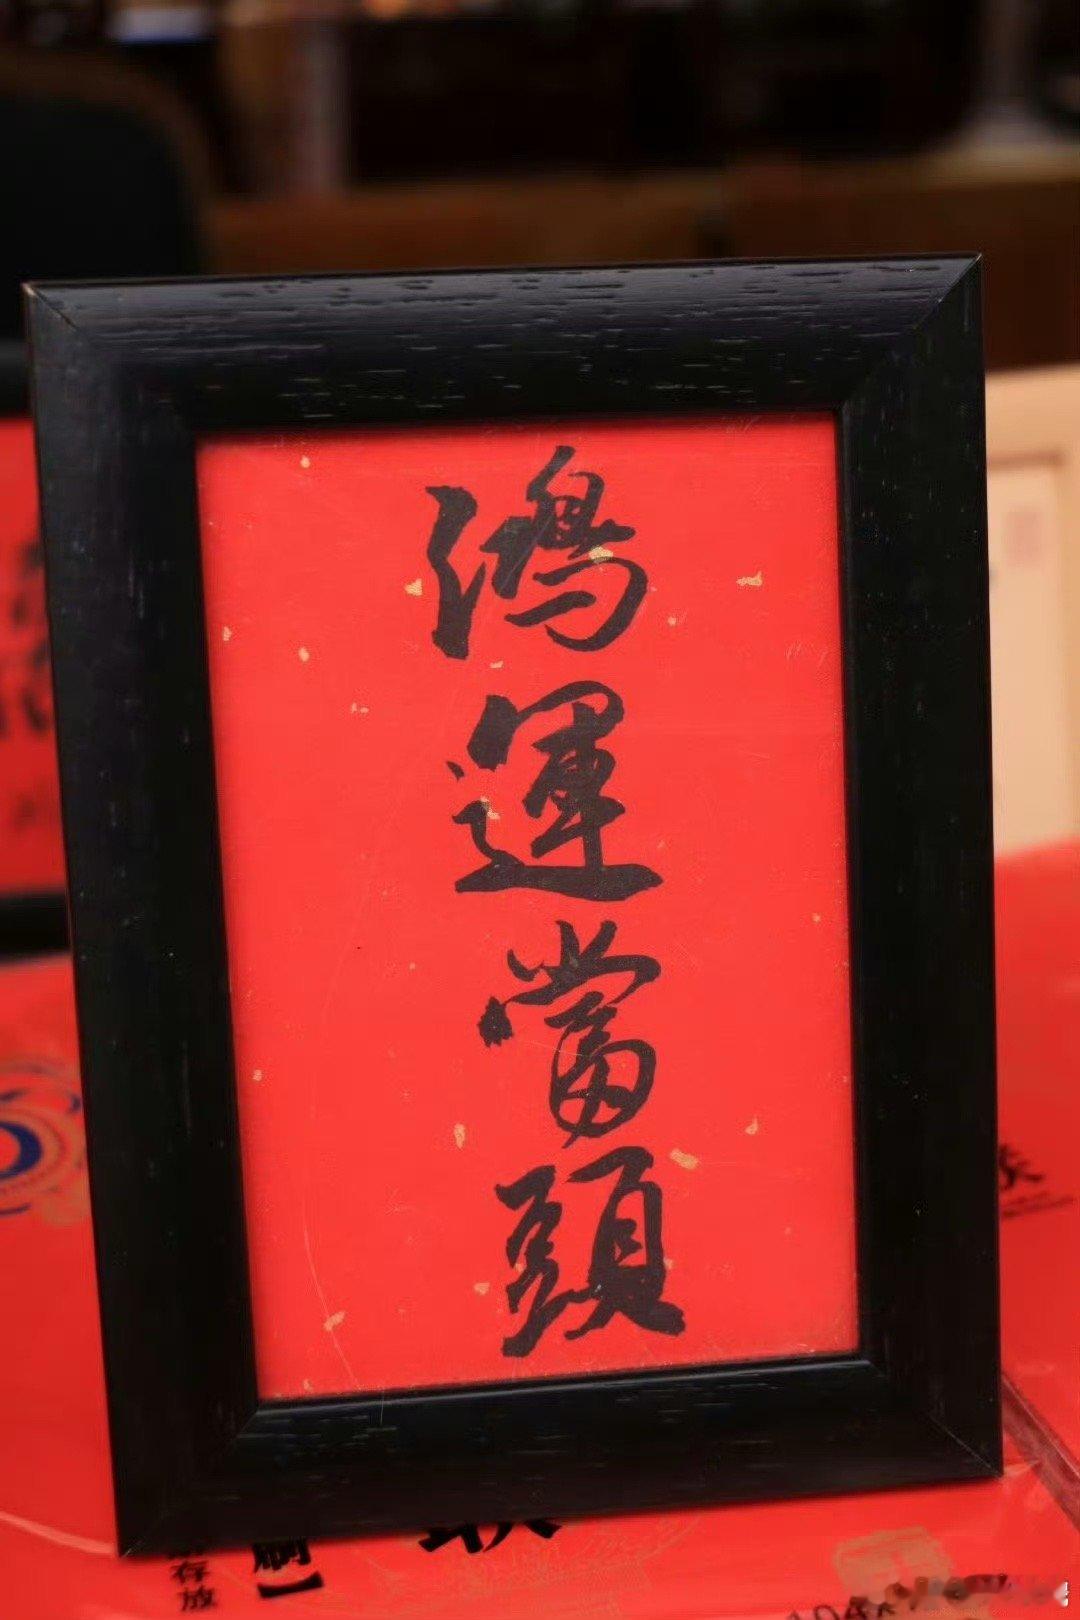 鴻運當頭
存放